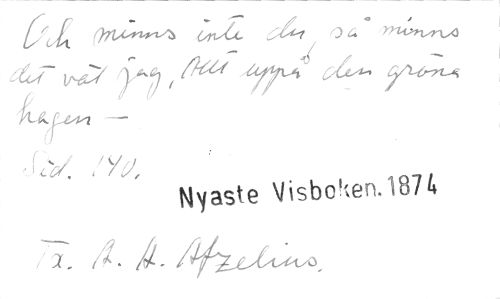 Och minns inte du, så minns
det väl jag, Allt uppå den gröna
hagen —
Sid. 140.
Nyaste Visboken. 1874
Tx. A. H. Afzelius.